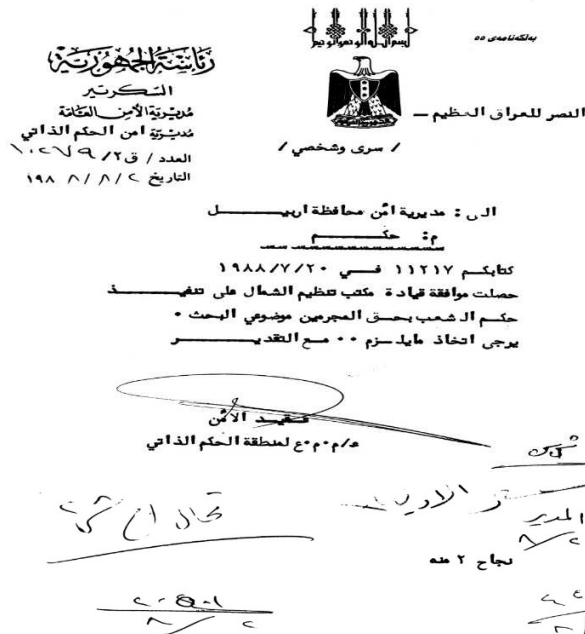 بسم الله الرحمن الرحيم
بەلگەنامەی ٥٥
رئاسة الجمهورية
السكرتير
مديرية الأمن العامة
مديرية امن الحكم الذاتي
العدد / ق٢/
التاريخ ٢ / ٨ / ١٩٨٨
النصر للعراق العظيم
/ سرى وشخصي /
الى : مديرية امن محافظة اربيل
م: حكم
كتابكم ١١٢١٧ في ١٩٨٨/٧/٢٠
حصلت موافقة قيادة مكتب تنظيم الشمال على تنفيذ
حكم الشعب بحق المجرمين موضوعي البحث ٠
يرجى اتخاذ مايلزم ٠٠ مع التقدير
عقيد الأمن
و/م٠م٠ع لمنطقة الحكم الذاتي
المدير
٨/٢
نجاح ٢ منه
٨/٢